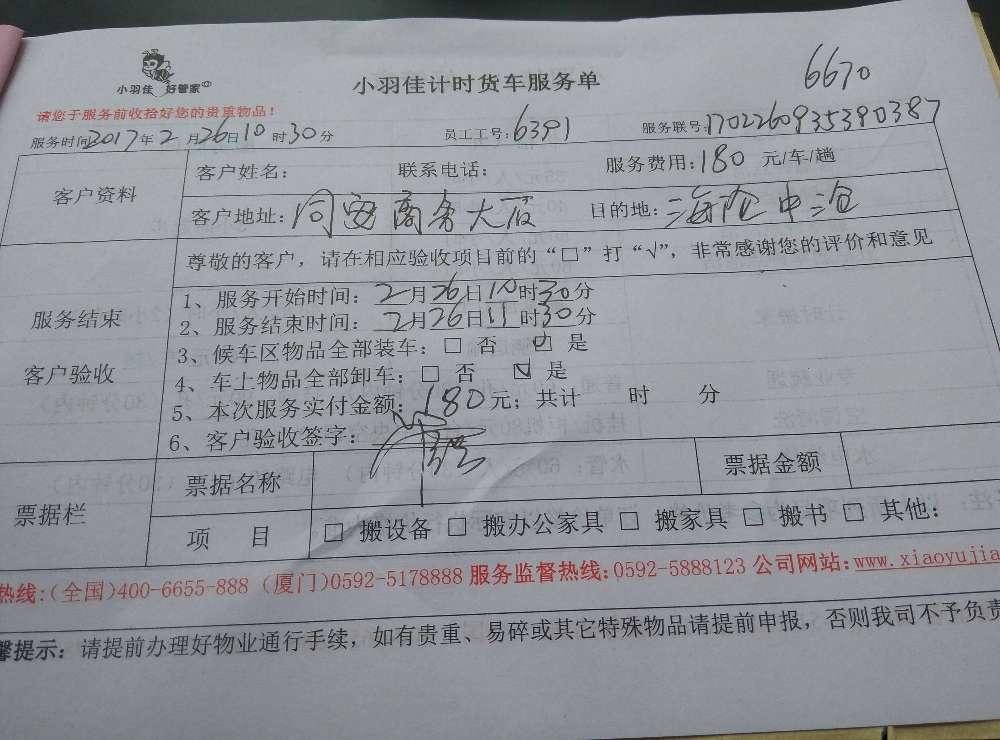 6670
小羽佳 好管家
小羽佳计时货车服务单
请您于服务前收拾好您的贵重物品！
服务时间2017年2月26日10时30分 员工工号:6391 服务联号:1702260935390387
客户资料
客户姓名： 联系电话： 服务费用:180 元/车/趟
客户地址:同安商务大厦 目的地:海沧中沧
尊敬的客户，请在相应验收项目前的“□”打“√”，非常感谢您的评价和意见
服务结束
客户验收
1、服务开始时间：2月26日10时30分
2、服务结束时间：2月26日11时30分
3、候车区物品全部装车：□ 否 ☑ 是
4、车上物品全部卸车：□ 否 ☑ 是
5、本次服务实付金额：180元；共计 时 分
6、客户验收签字：
票据栏
票据名称 票据金额
项 目 □ 搬设备 □ 搬办公家具 □ 搬家具 □ 搬书 □ 其他：
热线:(全国)400-6655-888 (厦门)0592-5178888 服务监督热线:0592-5888123 公司网站:www.xiaoyujia
馨提示：请提前办理好物业通行手续，如有贵重、易碎或其它特殊物品请提前申报，否则我司不予负责